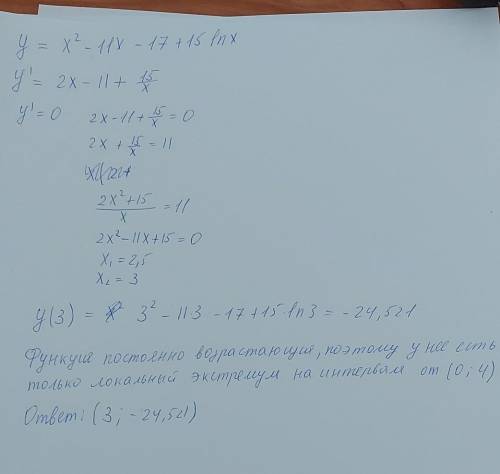 y = x² - 11x - 17 + 15 lnx
y' = 2x - 11 + 15/x
y' = 0 2x - 11 + 15/x = 0
2x + 15/x = 11
(2x² + 15)/x = 11
2x² - 11x + 15 = 0
x₁ = 2,5
x₂ = 3
y(3) = 3² - 11·3 - 17 + 15·ln3 = -24,521
Функция постоянно возрастающие, поэтому у нее есть
только локальный экстремум на интервале от (0; 4)
Ответ: (3; -24,521)